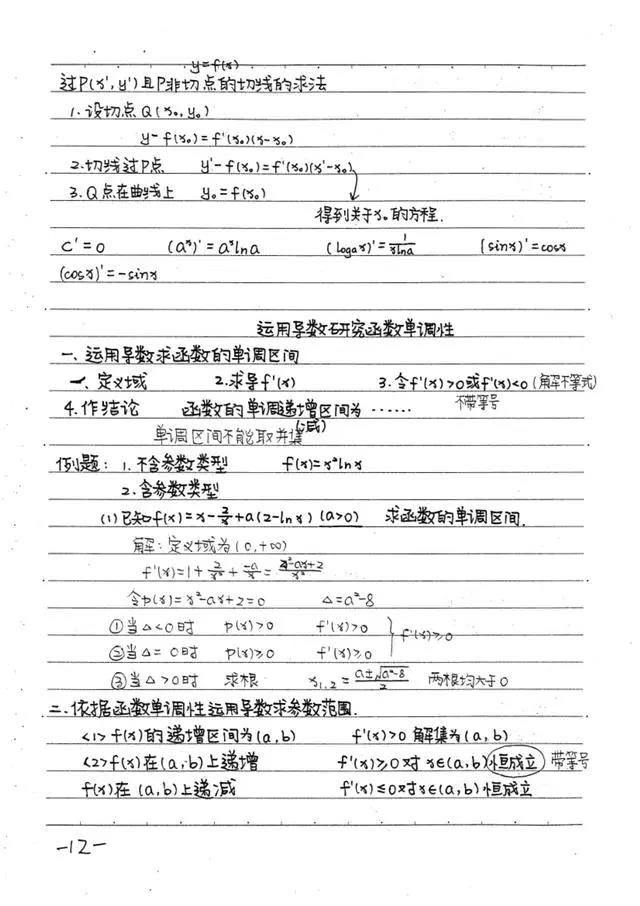 y=f(x)
过P(x',y')且P非切点的切线的求法
1.设切点Q(x₀,y₀)
y-f(x₀)=f'(x₀)(x-x₀)
2.切线过P点 y'-f(x₀)=f'(x₀)(x'-x₀)
3.Q点在曲线上 y₀=f(x₀)
得到关于x₀的方程.
C'=0 (aˣ)'=aˣlna (logₐx)'=1/(xlna) (sinx)'=cosx
(cosx)'=-sinx
运用导数研究函数单调性
一、运用导数求函数的单调区间
1、定义域 2.求导f'(x) 3.令f'(x)>0或f'(x)<0(解不等式)
不带等号
4.作结论 函数的单调递增区间为……
(减)
单调区间不能取并集
例题: 1.不含参数类型 f(x)=x²lnx
2.含参数类型
(1)已知f(x)=x-2/x+a(2-lnx) (a>0) 求函数的单调区间.
解:定义域为(0,+∞)
f'(x)=1+2/x²+-a/x=x²-ax+2/x²
令p(x)=x²-ax+2=0 Δ=a²-8
①当Δ<0时 p(x)>0 f'(x)>0
f'(x)≥0
②当Δ=0时 p(x)≥0 f'(x)≥0
③当Δ>0时 求根 x₁,₂=a±√a²-8/2 两根均大于0
二、依据函数单调性运用导数求参数范围.
<1>f(x)的递增区间为(a,b) f'(x)>0解集为(a,b)
<2>f(x)在(a,b)上递增 f'(x)≥0对x∈(a,b)恒成立 带等号
f(x)在(a,b)上递减 f'(x)≤0对x∈(a,b)恒成立
-12-